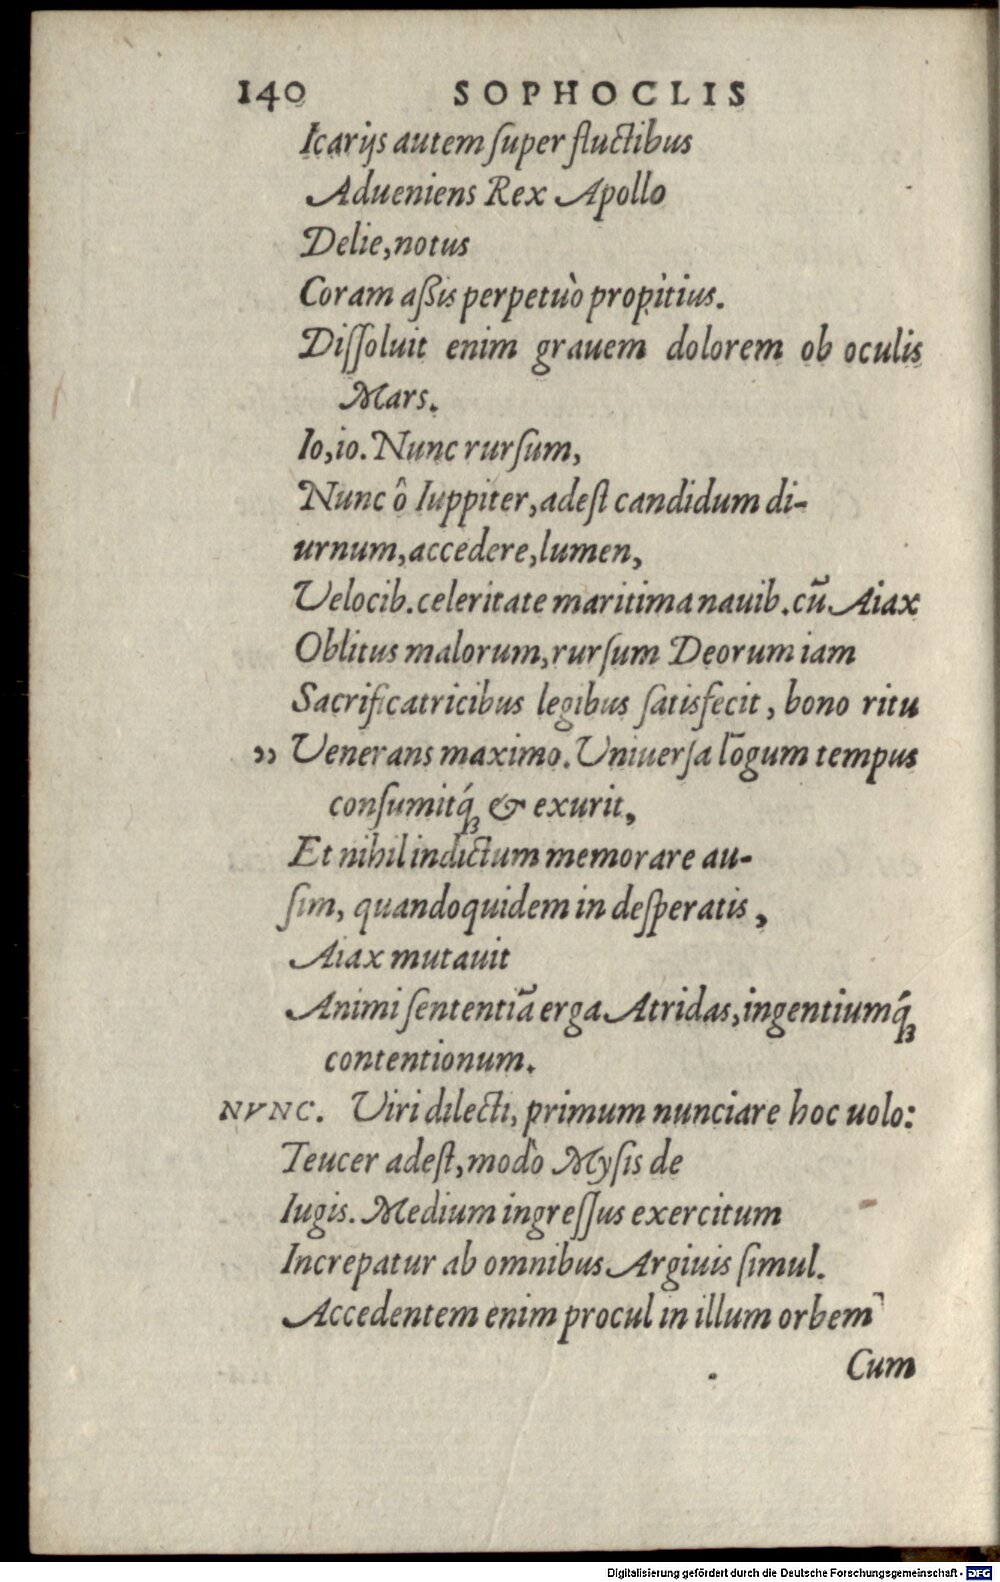 140 SOPHOCLIS
Icarijs autem ſuper fluctibus
Adueniens Rex Apollo
Delie, notus
Coram aßis perpetuò propitius.
Diſſoluit enim grauem dolorem ob oculis
Mars.
Io, io. Nunc rurſum,
Nunc ô Iuppiter, adeſt candidum di-
urnum, accedere, lumen,
Velocib. celeritate maritima nauib. cũ Aiax
Oblitus malorum, rurſum Deorum iam
Sacrificatricibus legibus ſatisfecit, bono ritu
„ Venerans maximo. Vniuerſa lõgum tempus
conſumitq́; & exurit,
Et nihil indictum memorare au-
ſim, quandoquidem in deſperatis,
Aiax mutauit
Animi ſententiã erga Atridas, ingentiumq́;
contentionum.
NVNC. Viri dilecti, primum nunciare hoc uolo:
Teucer adeſt, modò Myſis de
Iugis. Medium ingreſſus exercitum
Increpatur ab omnibus Argiuis ſimul.
Accedentem enim procul in illum orbem
Cum
Digitalisierung gefördert durch die Deutsche Forschungsgemeinschaft - DFG